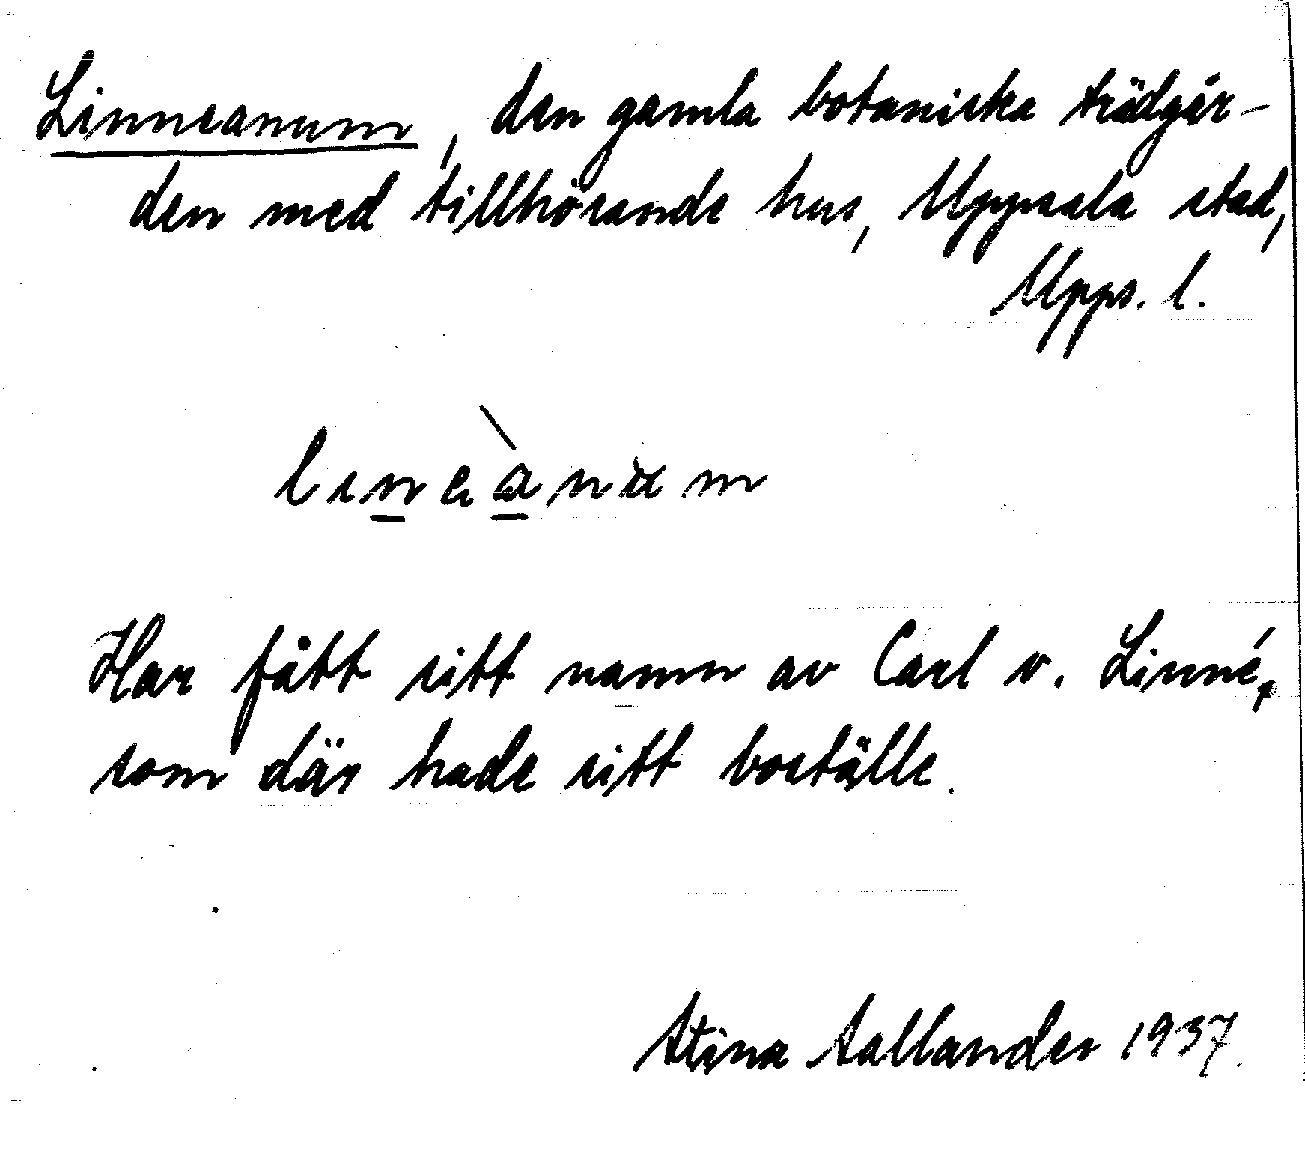 Linneanum, den gamla botaniska trädgår-
den med tillhörande hus, Uppsala stad,
Upps. l.
Har fått sitt namn av Carl v. Linné,
som där hade sitt boställe.
Stina Sallander 1937.